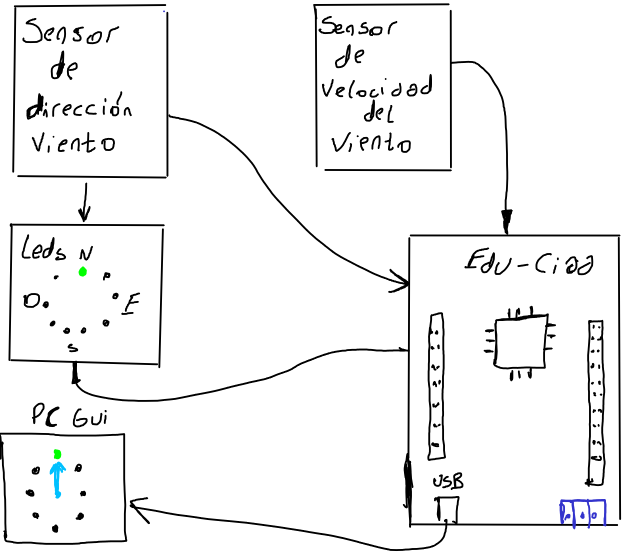 Sensor
de
dirección
viento
Sensor
de
velocidad
del
viento
Leds N
O E
S
Edu-Ciaa
PC Gui
USB